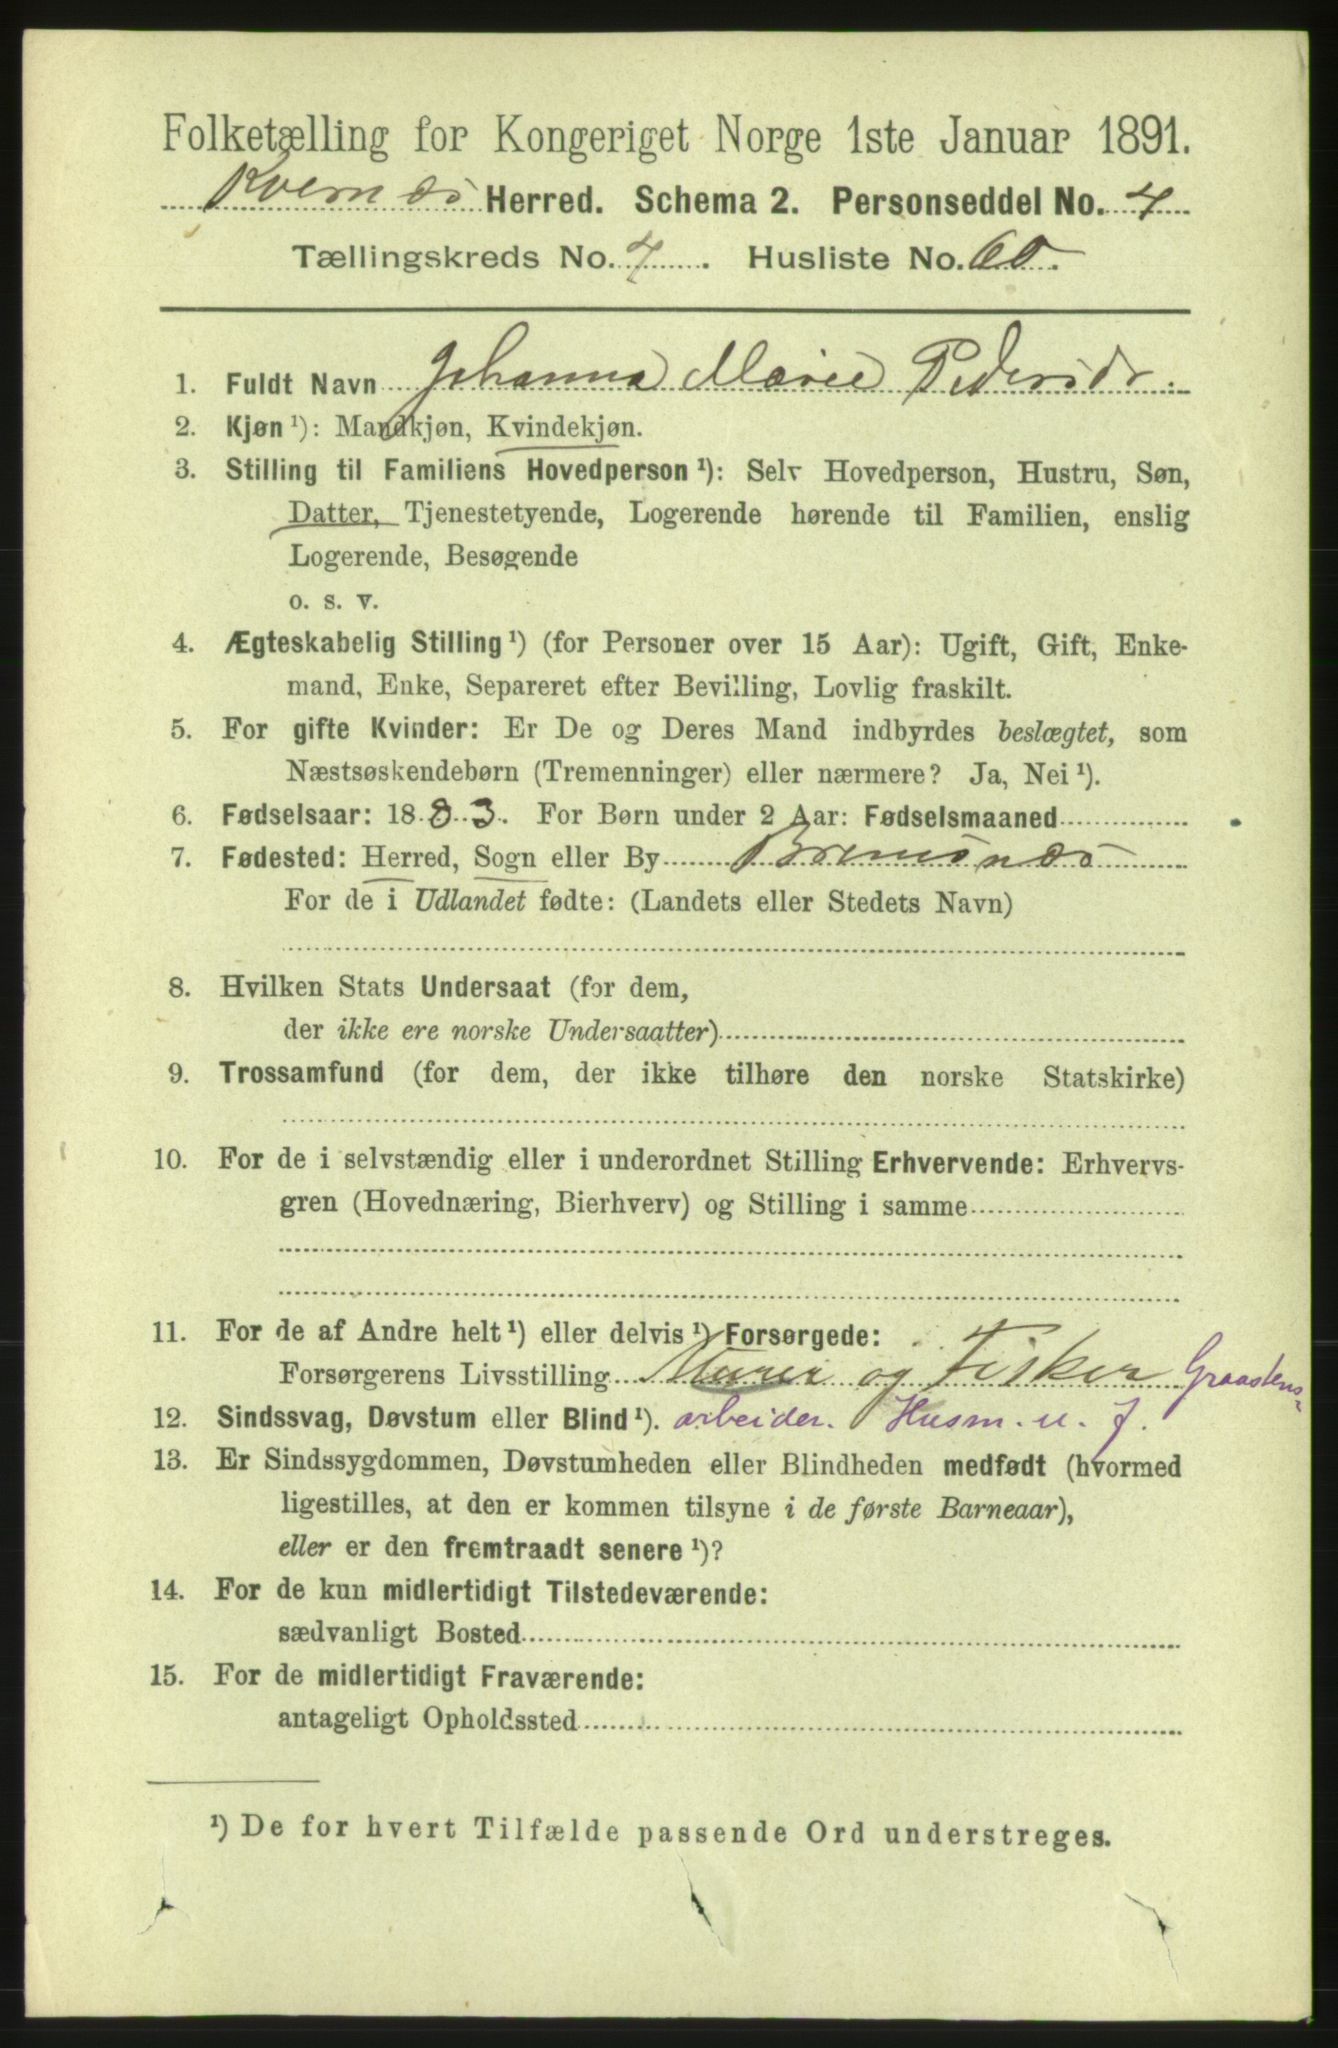 Folketælling for Kongeriget Norge 1ste Januar 1891.
Kvernæs Herred. Schema 2. Personseddel No. 4
Tællingskreds No. 7. Husliste No. 60.
1. Fuldt Navn Johanna Marie Pedersdr.
2. Kjøn¹): Mandkjøn, Kvindekjøn.
3. Stilling til Familiens Hovedperson¹): Selv Hovedperson, Hustru, Søn,
Datter, Tjenestetyende, Logerende hørende til Familien, enslig
Logerende, Besøgende
o. s. v.
4. Ægteskabelig Stilling¹) (for Personer over 15 Aar): Ugift, Gift, Enke-
mand, Enke, Separeret efter Bevilling, Lovlig fraskilt.
5. For gifte Kvinder: Er De og Deres Mand indbyrdes beslægtet, som
Næstsøskendebørn (Tremenninger) eller nærmere? Ja, Nei¹).
6. Fødselsaar: 1883. For Børn under 2 Aar: Fødselsmaaned
7. Fødested: Herred, Sogn eller By Bremsnæs
For de i Udlandet fødte: (Landets eller Stedets Navn)
8. Hvilken Stats Undersaat (for dem,
der ikke ere norske Undersaatter)
9. Trossamfund (for dem, der ikke tilhøre den norske Statskirke)
10. For de i selvstændig eller i underordnet Stilling Erhvervende: Erhvervs-
gren (Hovednæring, Bierhverv) og Stilling i samme
11. For de af Andre helt¹) eller delvis¹) Forsørgede:
Forsørgerens Livsstilling Murer og Fisker Graastens-
12. Sindssvag, Døvstum eller Blind¹). arbeider. Husm. u. J.
13. Er Sindssygdommen, Døvstumheden eller Blindheden medfødt (hvormed
ligestilles, at den er kommen tilsyne i de første Barneaar),
eller er den fremtraadt senere¹)?
14. For de kun midlertidigt Tilstedeværende:
sædvanligt Bosted
15. For de midlertidigt Fraværende:
antageligt Opholdssted
¹) De for hvert Tilfælde passende Ord understreges.